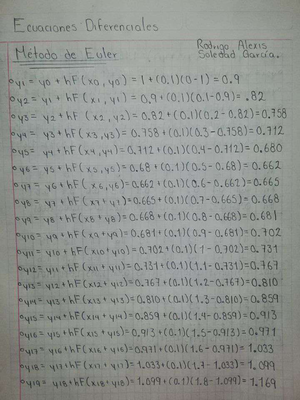 Ecuaciones Diferenciales
Método de Euler
Rodrigo Alexis
Soledad García.
y1 = y0 + hF(x0, y0) = 1+(0.1)(0-1) = 0.9
y2 = y1 + hF(x1, y1) = 0.9+(0.1)(0.1-0.9) = .82
y3 = y2 + hF(x2, y2) = 0.82+(0.1)(0.2-0.82) = 0.758
y4 = y3 + hF(x3, y3) = 0.758+(0.1)(0.3-0.758) = 0.712
y5 = y4 + hF(x4, y4) = 0.712+(0.1)(0.4-0.712) = 0.680
y6 = y5 + hF(x5, y5) = 0.68+(0.1)(0.5-0.68) = 0.662
y7 = y6 + hF(x6, y6) = 0.662+(0.1)(0.6-0.662) = 0.665
y8 = y7 + hF(x7+y7) = 0.665+(0.1)(0.7-0.665) = 0.668
y9 = y8 + hF(x8+y8) = 0.668+(0.1)(0.8-0.668) = 0.681
y10 = y9 + hF(x9+y9) = 0.681+(0.1)(0.9-0.681) = 0.702
y11 = y10 + hF(x10+y10) = 0.702+(0.1)(1-0.702) = 0.731
y12 = y11 + hF(x11+y11) = 0.731+(0.1)(1.1-0.731) = 0.767
y13 = y12 + hF(x12+y12) = 0.767+(0.1)(1.2-0.767) = 0.810
y14 = y13 + hF(x13+y13) = 0.810+(0.1)(1.3-0.810) = 0.859
y15 = y14 + hF(x14+y14) = 0.859+(0.1)(1.4-0.859) = 0.913
y16 = y15 + hF(x15+y15) = 0.913+(0.1)(1.5-0.913) = 0.971
y17 = y16 + hF(x16+y16) = 0.971+(0.1)(1.6-0.971) = 1.033
y18 = y17 + hF(x17+y17) = 1.033+(0.1)(1.7-1.033) = 1.099
y19 = y18 + hF(x18+y18) = 1.099+(0.1)(1.8-1.099) = 1.169